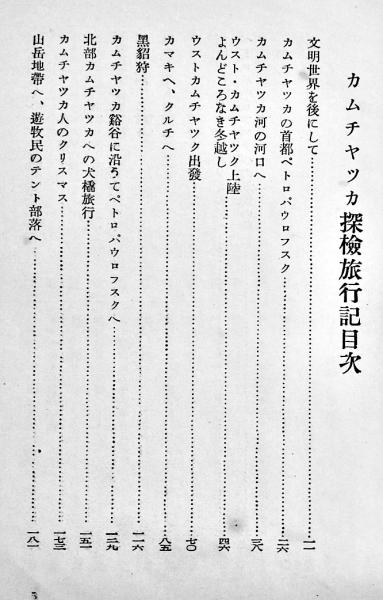 カムチヤツカ探檢旅行記目次
文明世界を後にして……一一
カムチヤツカの首都ペトロパウロフスク……二六
カムチヤツカ河の河口へ……三八
ウスト・カムチヤツク上陸
よんどころなき冬越し……四六
ウストカムチヤツク出發……七〇
カマキヘ、クルチへ……八五
黑貂狩……一一六
カムチヤツカ谿谷に沿うてペトロパウロフスクへ……一三九
北部カムチヤツカへの犬橇旅行……一五一
カムチヤツカ人のクリスマス……一七三
山岳地帶へ、遊牧民のテント部落へ……一八一